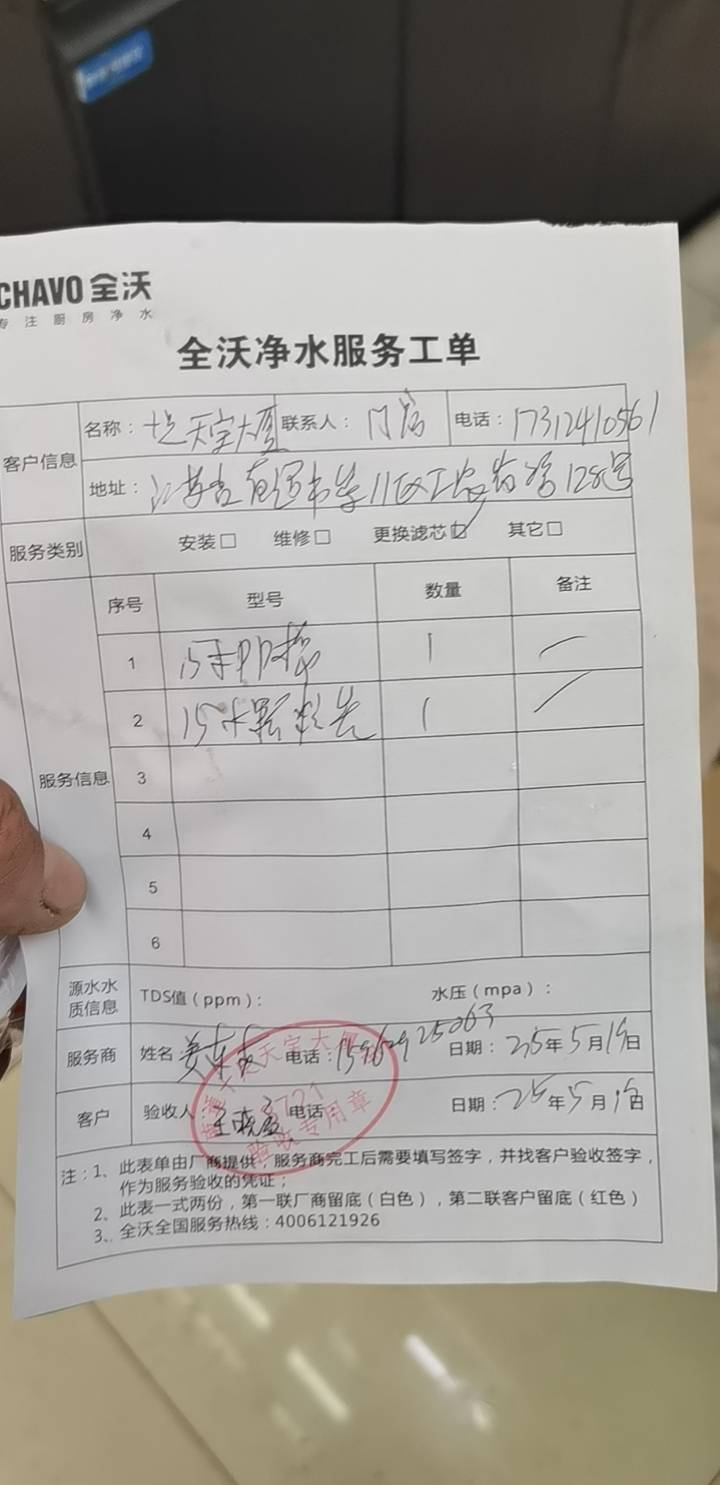 CHAVO 全沃
专注厨房净水
全沃净水服务工单
客户信息
名称: 天宝大厦 联系人: 门店 电话: 17312410561
地址: 江苏省南通市 工农 路128号
服务类别 安装□ 维修□ 更换滤芯☑ 其它□
服务信息
序号 型号 数量 备注
1 15寸PP棉 1 —
2 15寸颗粒炭 1 —
3
4
5
6
源水水质信息 TDS值(ppm): 水压(mpa):
服务商 姓名 姜东 电话: 15962925063 日期: 25年5月19日
客户 验收人: 王晓 电话 日期: 25年5月19日
天宝大厦
验收专用章
注:1、此表单由厂商提供,服务商完工后需要填写签字,并找客户验收签字,
作为服务验收的凭证;
2、此表一式两份,第一联厂商留底(白色),第二联客户留底(红色)
3、全沃全国服务热线:4006121926